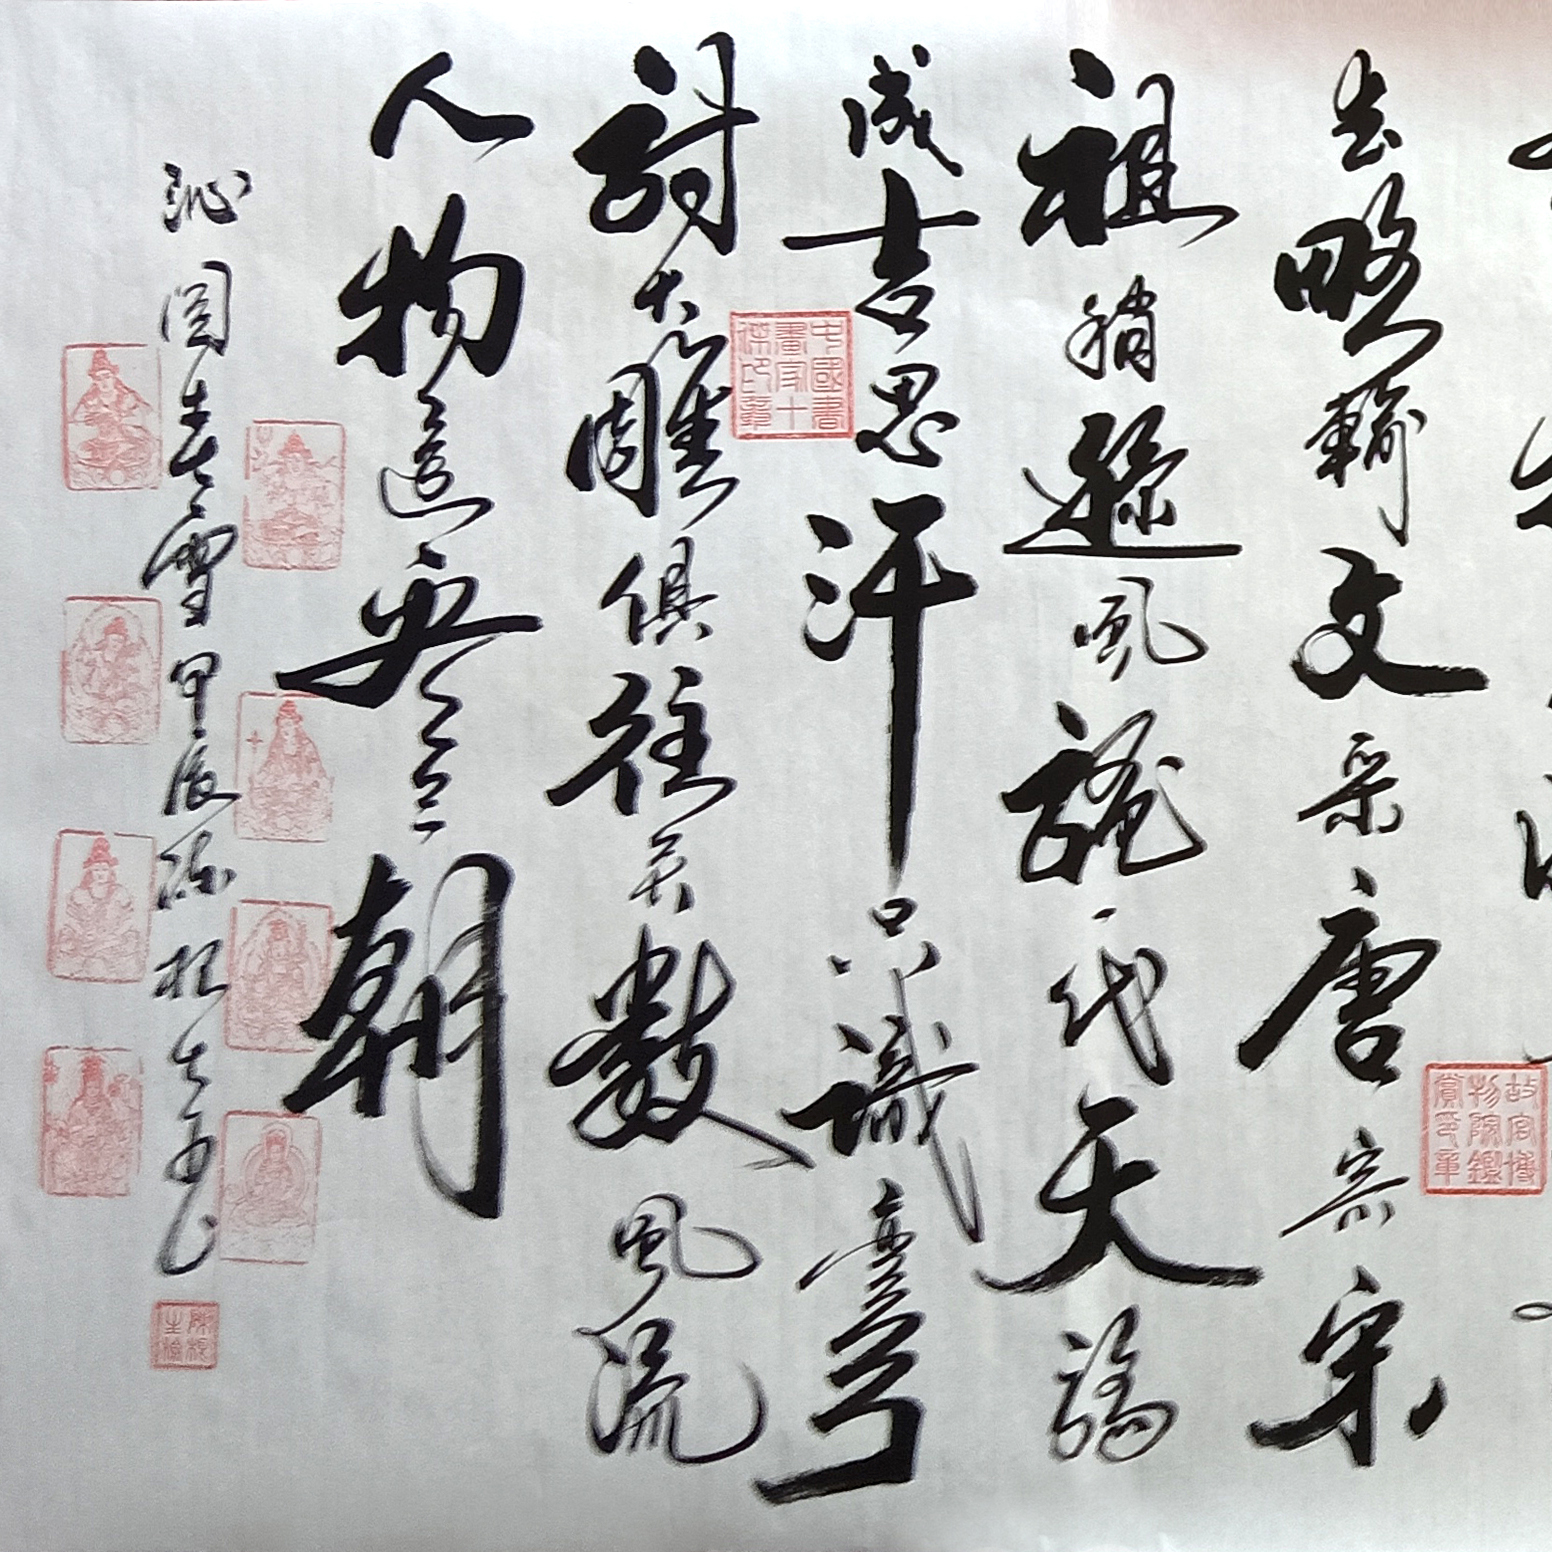 武略輸文采唐宗宋
祖稍遜風騷一代天驕
成吉思汗只識彎弓
射大雕俱往矣數風流
人物還看今朝
沁園春雪甲辰陳根生書
中國書畫家十傑印章
故宮博物院鑑賞印章